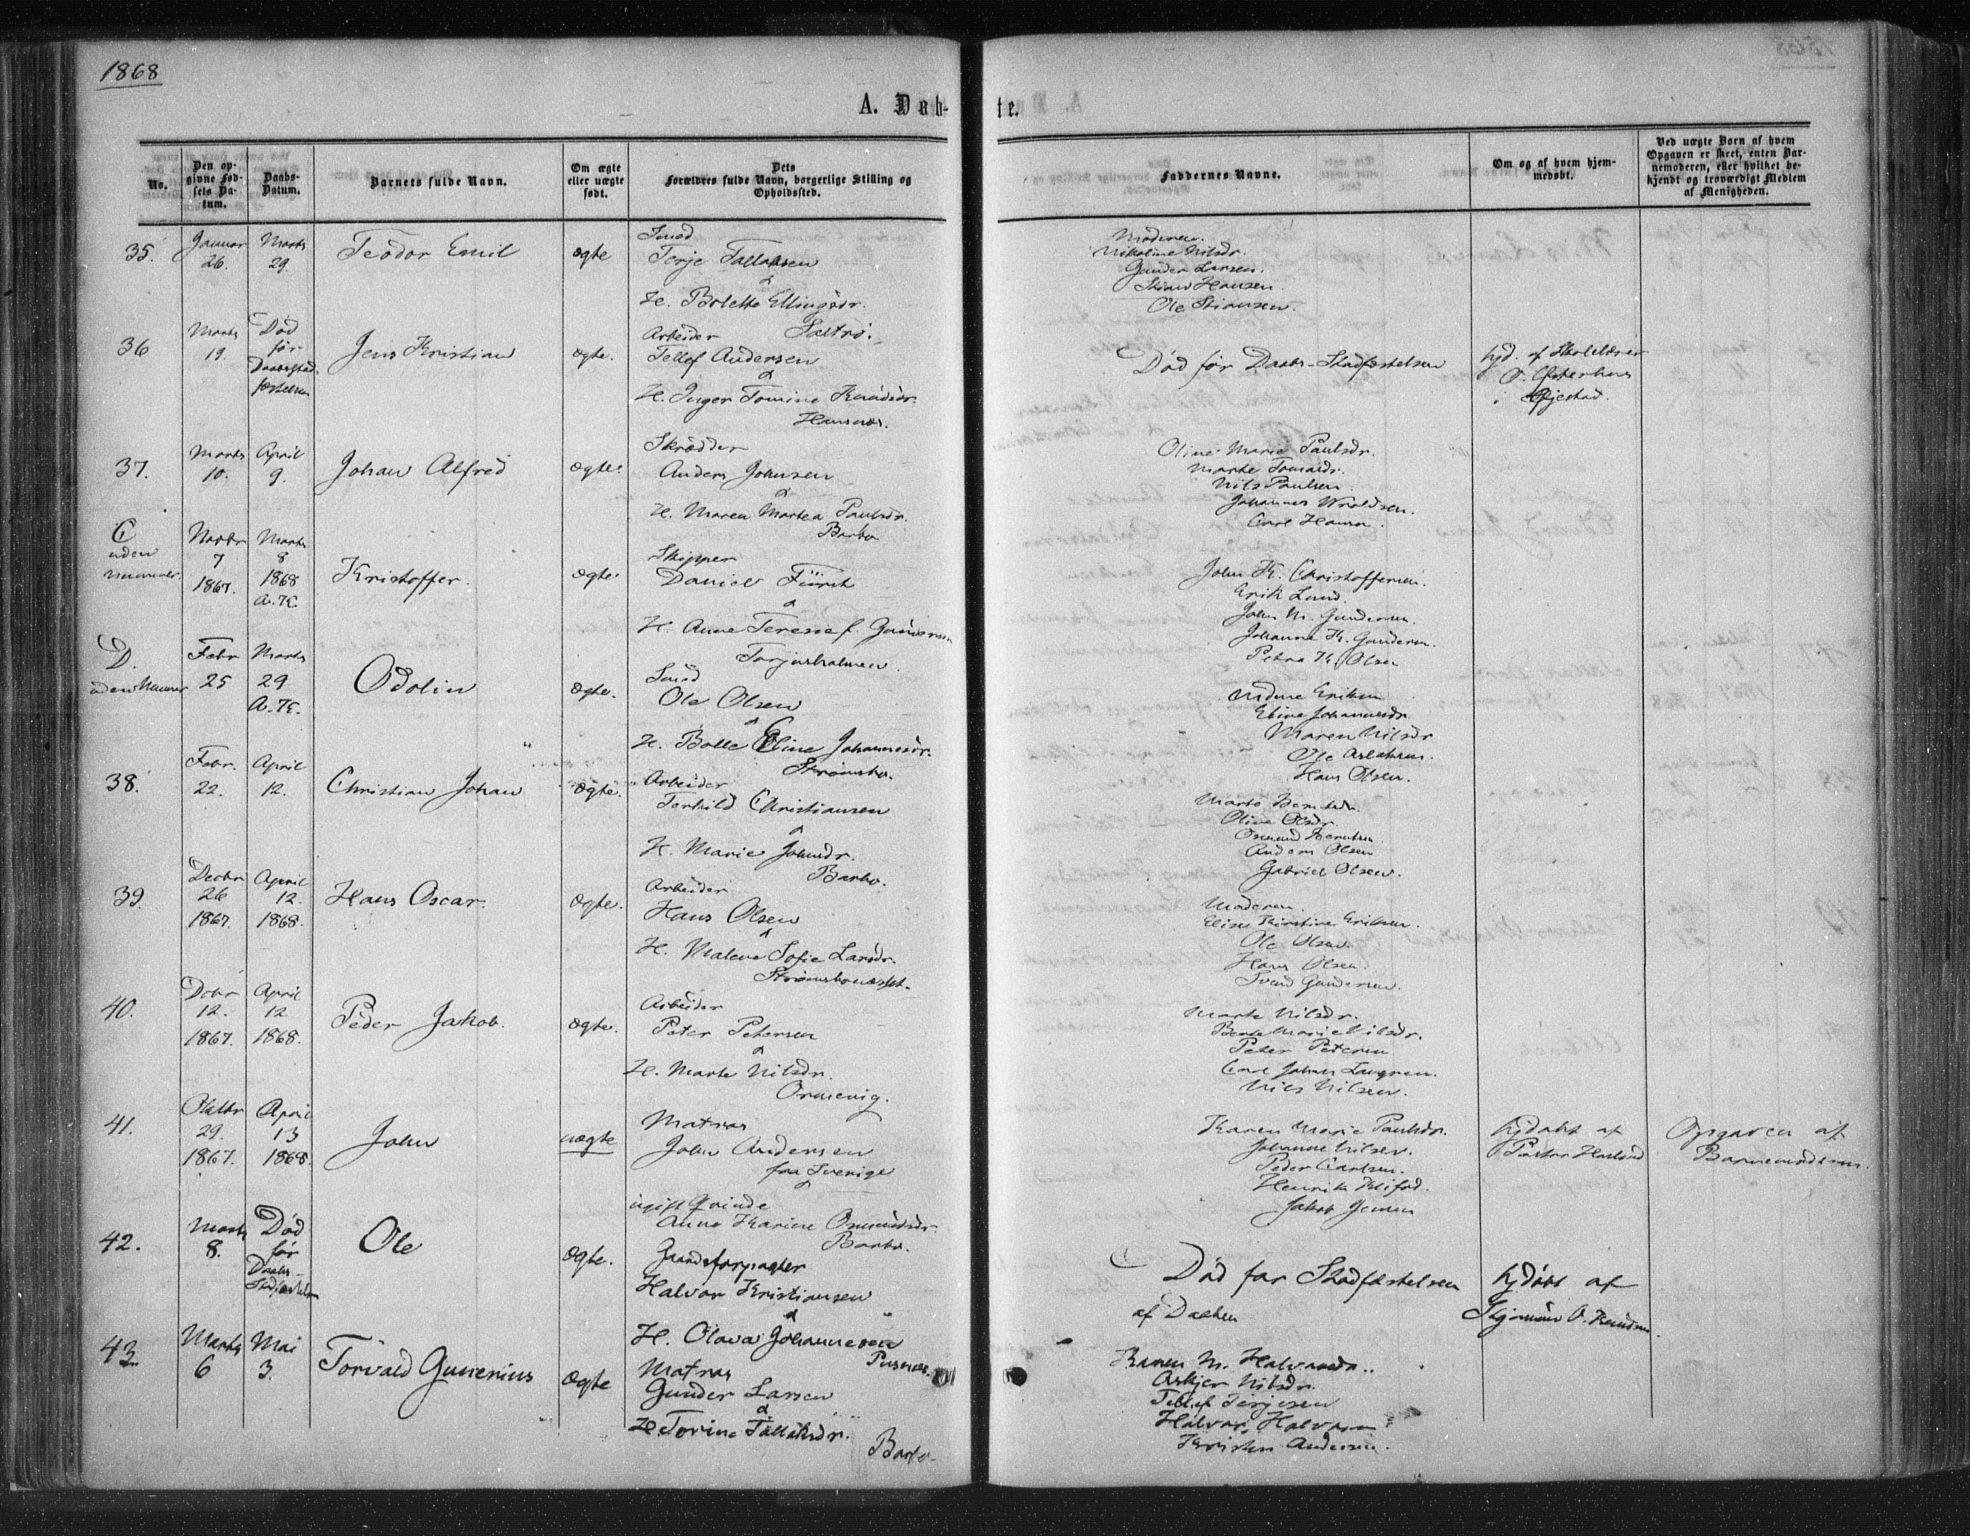 1868
A. Døb-
te.
No.
Den op-
givne Fød-
sels Da-
tum.
Daabs-
Datum.
Barnets fulde Navn.
Om ægte
eller uægte
født.
Dets
Forældres fulde Navn, borgerlige Stilling og
Opholdssted.
Faddernes Navne.
Om og af hvem hjem-
medøbt.
Ved uægte Børn af hvem
Opgaven er skeet, enten Bar-
nemoderen, eller hvilket be-
kjendt og troværdigt Medlem
af Menigheden.
35.
Januar
26.
Marts
29.
Teodor Emil
ægte
Smed
Terje Tallaksen
&
H. Bolette Ellingsdr.
Saltrø.
Moderen.
Nikoline Nilsdr.
Gunder Larsen.
Stian Hansen.
Ole Stiansen.
36
Marts
19.
Død
før
Daabsstad-
fæstelsen
Jens Kristian
ægte.
Arbeider
Tellef Andersen
&
H. Inger Tomine Knudsdr.
Hansnæs.
Død før Daabs-Stadfæstelsen
hjd. af Skolelærer
O. Østerhus
i Øjestad.
37.
Marts
10.
April
9.
Johan Alfred
ægte.
Skrædder
Anders Johnsen
&
H. Maren Martea Paulsdr.
Barbo
Oline Marie Paulsdr.
Marte Tomasdr.
Nils Paulsen.
Johannes Wroldsen.
Carl Hansen.
C
uden
nummer.
Novbr
7
1867.
Marts
8
1868
A.K.
Kristoffer.
ægte.
Skipper
Daniel Fürst
&
H. Anne Terese f. Gundersen
Torjusholmen.
John K. Christoffersen.
Erik Lund.
John M. Gundersen.
Johanne K. Gundersen.
Petra K. Olsen
D.
uden Nummer
Febr
25
Marts
29
A.K.
Odolin
ægte.
Smed
Ole Olsen
&
H. Bolle Eline Johannesdr.
Strømsbo.
Eriksen
Eline Johannesdr.
Maren Nilsdr
Ole Aslaksen.
Hans Olsen.
38.
Febr.
22.
April
12.
Christian Johan
ægte.
Arbeider
Terkild Christiansen
&
H. Marie Johnsdr.
Barbo.
Marte Berntsdr.
Oline Olsdr.
Osmund Berntsen
Anders Olsen
Gabriel Olsen.
39.
Decbr
26
1867.
April
12.
1868.
Hans Oscar.
ægte.
Arbeider
Hans Olsen
&
H. Malene Sofie Larsdr.
Strømsbonæsset.
Moderen.
Elise Kirstine Eriksen.
Ole Olsen.
Hans Olsen.
Svend Gundersen.
40.
Dcbr
12.
1867.
April
12
1868.
Peder Jakob.
ægte.
Arbeider
Peter Petersen
&
H. Marte Nilsdr.
Ormevig.
Marte Nilsdr.
Berte Marie Nilsdr.
Peter Petersen
Carl Johan
Nils Nilsen.
41.
Oktbr
29.
1867.
April
13
1868.
John
uægte
Matros
John Andersen
fra Sverige
&
ugift Qvinde
Anne Karine Osmundsdr.
Barbo.
Karen Marie Paulsdr.
Johanne Nilsen.
Peder Carlsen.
Henrik
Jakob Jensen
hjdøbt af
Pastor Harland
Opgaven af
Barnemoderen.
42.
Marts
8.
Død
før
Daabs-
Stadfæstelsen
Ole
ægte.
Gaardsforpagter
Halvor Kristiansen
&
H. Olava Johannesen
Pusnæs.
Død før Stadfæstelsen
af Daaben
hjdøbt af
O. Knudsen.
43.
Marts
6
Mai
3.
Torvald Gunerius
ægte
Matros
Gunder Larsen
&
H. Torine Tallaksdr.
Barbo.
Karen M. Halvorsdr.
Asbjør Nilsdr.
Tellef Terjesen
Halvor Halvorsen
Kristen Andersen.